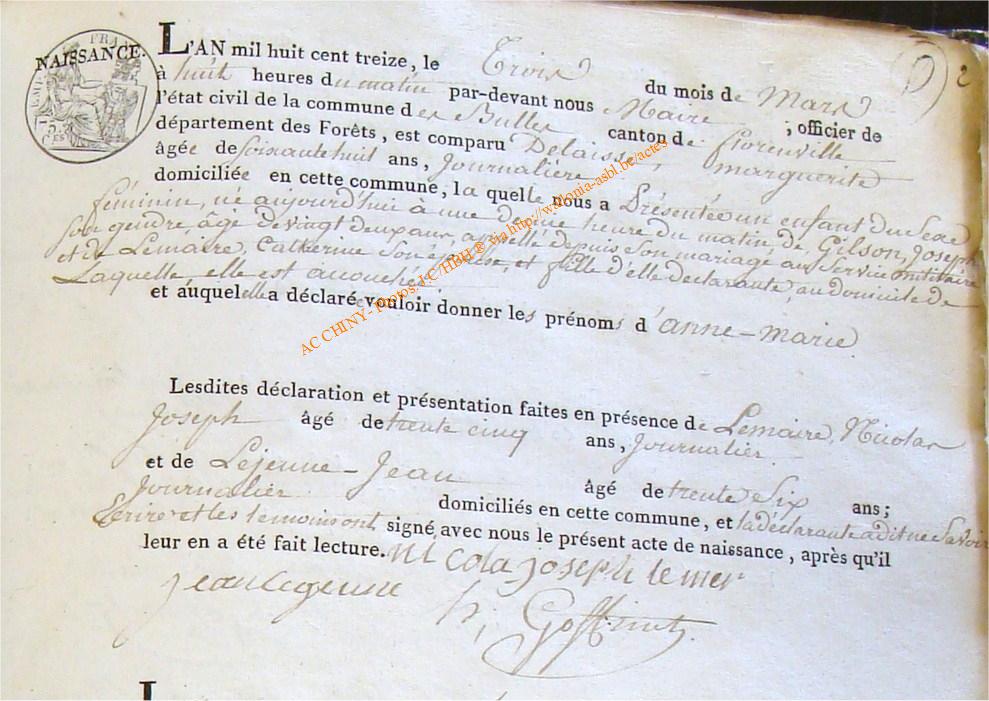 NAISSANCE.
L'AN mil huit cent treize, le Trois du mois de Mars
à huit heures du matin par-devant nous Maire ; officier de
l'état civil de la commune des Bulles canton de florenville
département des Forêts, est comparu Delaisse, marguerite
âgée de soixante huit ans, Journalière
domiciliée en cette commune, la quelle nous a Présentée un enfant du Sexe
féminin, né aujourd'hui à une heure du matin, de Gilson, Joseph
son gendre, âgé de vingt deux ans, appellé depuis son mariage au Service militaire
et de Lemaire, Catherine Son épouse, et fille d'elle déclarante, au domicile de
Laquelle elle est accouchée
et auquel elle a déclaré vouloir donner les prénoms d'anne-marie.
Lesdites déclaration et présentation faites en présence de Lemaire, Nicolas
Joseph âgé de trente cinq ans, Journalier.
et de Lejeune-Jean âgé de trente Six ans;
Journalier domiciliés en cette commune, et la déclarante a dit ne Savoir
Ecrire et les temoins ont signé avec nous le présent acte de naissance, après qu'il
leur en a été fait lecture. nicola joseph lemer
jean legenne h, Goffinet
L
2
AC CHINY- Photos J.C/HBH ® via http://wallonia-asbl.be/actes